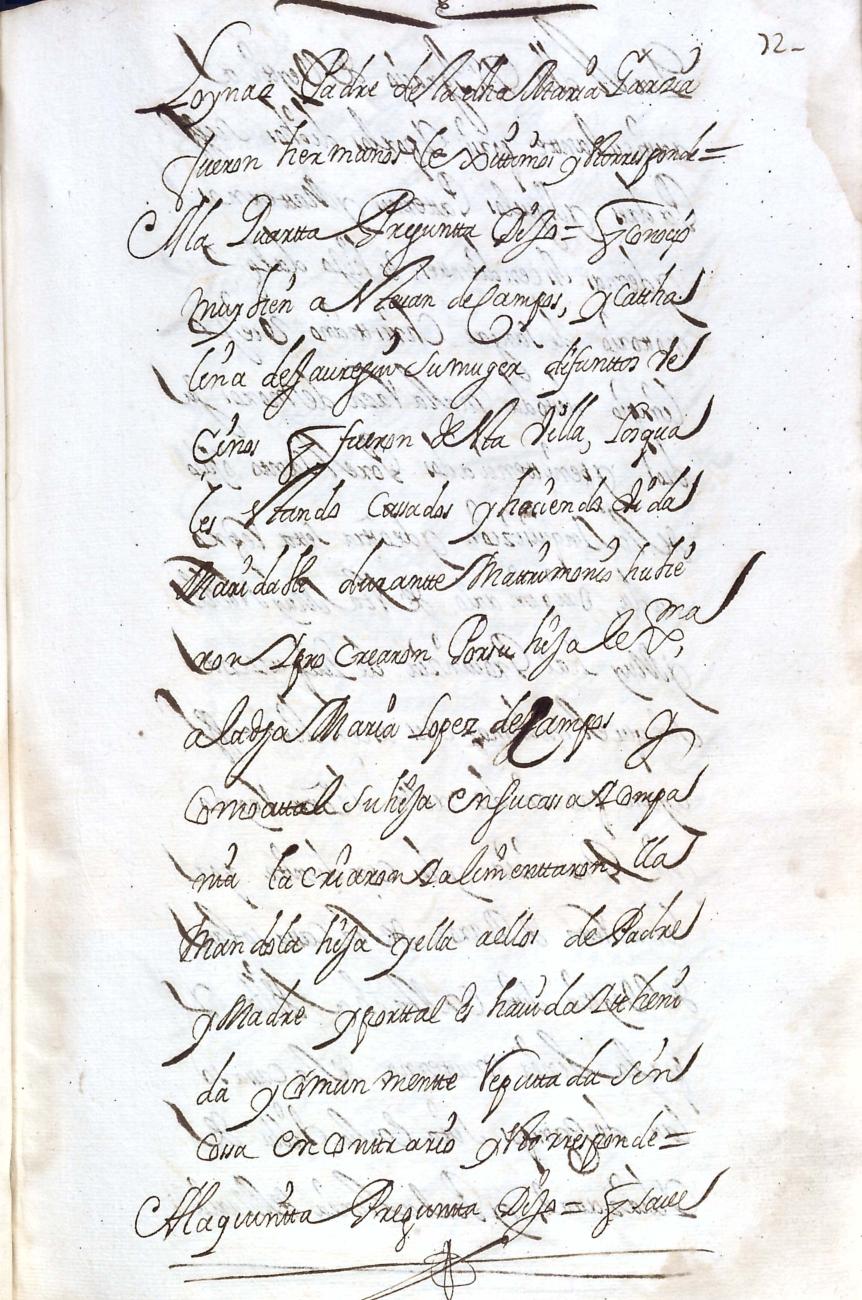 72-
Loynaz Padre de la dha Maria Garzia
fueron hermanos lexittimos y esto rresponde =
A la Quartta Pregunta Dijo = q conocio
muy bien a Stevan de Campos, y Catha
lina de Jauregui su muger difunttos ve
cinos q fueron de esta Villa, los qua
les estando cassados y haciendo vida
Maridable durantte Mattrimonio hubie
ron y procrearon Por su hija lexma,
a la dha Maria Lopez de Campos y
como a ttal su hija en su cassa y compa
nia la criaron y alimenttaron, lla
mandola hija y ella a ellos de Padre
y Madre y por ttal es havida y ttheni
da y comun mentte Reputtada sin
cossa en conttrario y esto rresponde =
A la quintta Pregunta Dijo = q save